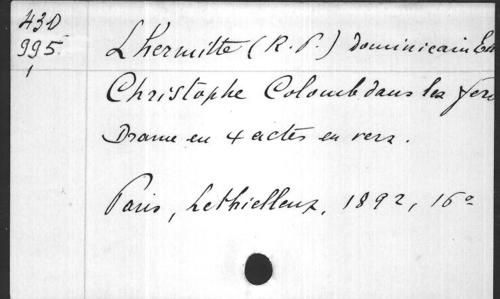 430
995
1
Lhermitte (R. P.) dominicain Em
Christophe Colomb dans les fers
Drame en 4 actes en vers.
Paris, Lethielleux, 1892, 16°